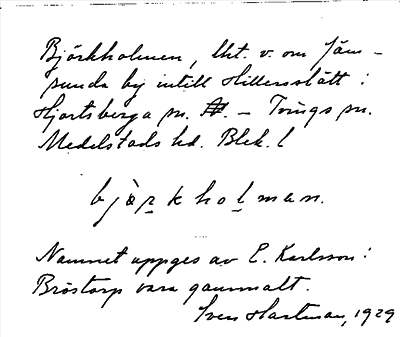 Björkholmen, lht. v. om Jäm-
sunda by intill Hillersslätt i
Hjortsberga sn. – Tvings sn.
Medelstads hd. Blek. l
björkholman.
Namnet uppges av C. Karlsson i
Bröstorp vara gammalt.
Sven Hartman, 1929